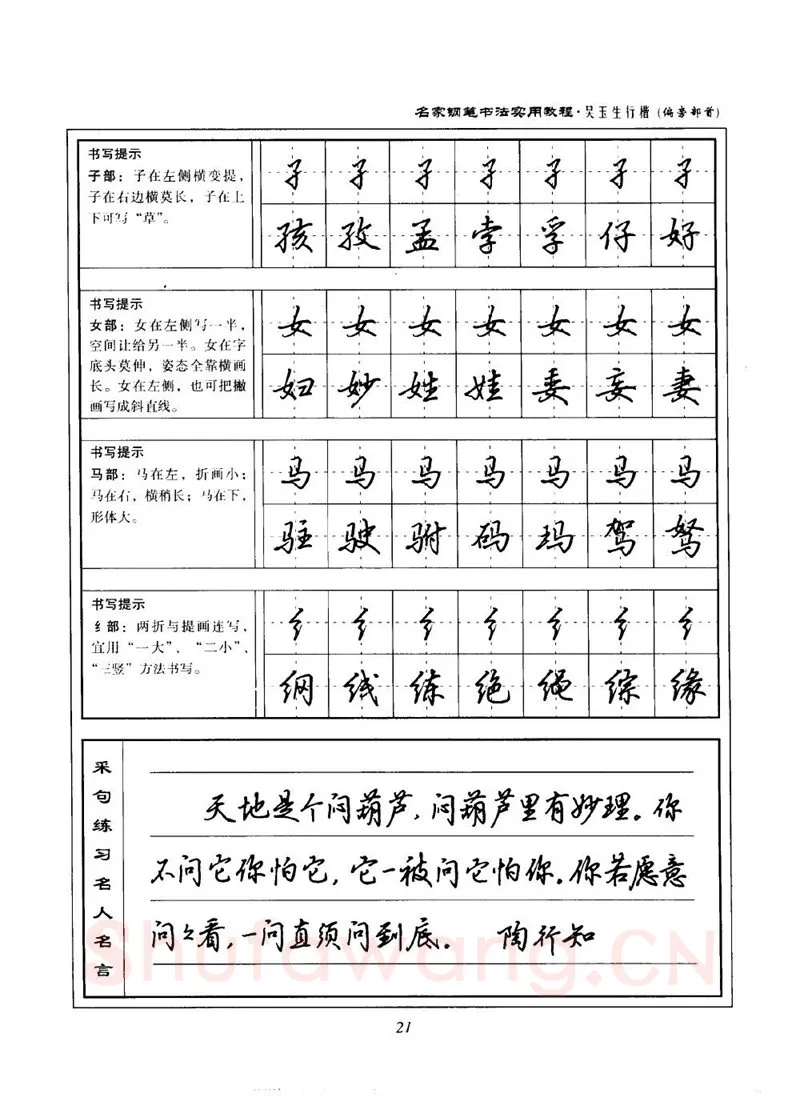 名家钢笔书法实用教程·吴玉生行楷(偏旁部首)
书写提示
子部：子在左侧横变提，
子在右边横莫长，子在上
下可写“草”。
子 子 子 子 子 子 子
孩 孜 孟 孛 孚 仔 好
书写提示
女部：女在左侧写一半，
空间让给另一半。女在字
底头莫伸，姿态全靠横画
长。女在左侧，也可把撇
画写成斜直线。
女 女 女 女 女 女 女
妇 妙 姓 娃 委 妄 妻
书写提示
马部：马在左，折画小；
马在右，横稍长；马在下，
形体大。
马 马 马 马 马 马 马
驻 驶 驸 码 玛 驾 驽
书写提示
纟部：两折与提画连写，
宜用“一大”、“二小”、
“三竖”方法书写。
纟 纟 纟 纟 纟 纟 纟
纲 线 练 绝 绳 综 缘
采句练习名人名言
天地是个闷葫芦，闷葫芦里有妙理。你
不问它你怕它，它一被问它怕你。你若愿意
问々看，一问直须问到底。 陶行知
Shufawang.CN
21